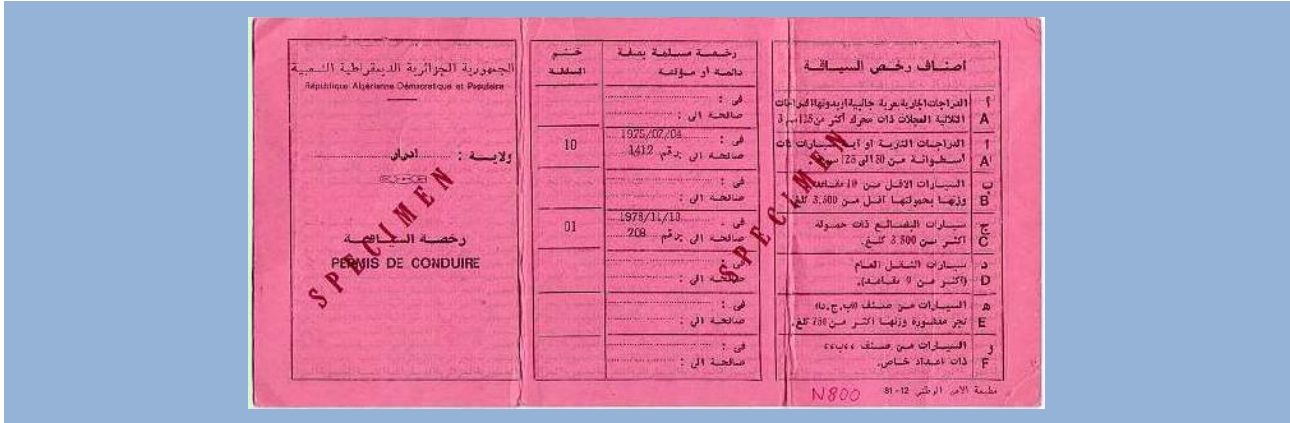 الجمهورية الجزائرية الديمقراطية الشعبية
République Algérienne Démocratique et Populaire
ولايـة : ادرار
رخصة السياقة
PERMIS DE CONDUIRE
SPECIMEN
ختم
السلطة
رخصة مسلمة بصفة
دائمة أو مؤقتة
في :
صالحة الى :
10
1975/02/04
في :
صالحة الى برقم 1412
في :
صالحة الى :
01
1978/11/13
في .
صالحة الى برقم 208
في :
صالحة الى :
في :
صالحة الى :
في :
صالحة الى :
SPECIMEN
اصناف رخص السياقة
أ
A
الدراجات النارية بعربة جانبية او بدونها الدراجات
الثلاثية العجلات ذات محرك أكثر من 125 سم 3
أ
A'
الدراجات النارية او
أسطوانة من 50 الى 125
ب
B
السيارات الاقل من 10 مقاعد
وزنها بحمولتها اقل من 3.500 كلغ
ج
C
سيارات البضائع ذات حمولة
اكثر من 3.500 كلغ.
د
D
سيارات النقل العام
(اكثر من 9 مقاعد).
ه
E
السيارات من صنف (ب.ج.د)
تجر مقطورة وزنها اكثر من 750 كلغ.
و
F
السيارات من صنف «ب»
ذات اعداد خاص.
N800
مطبعة الامن الوطني 12-81